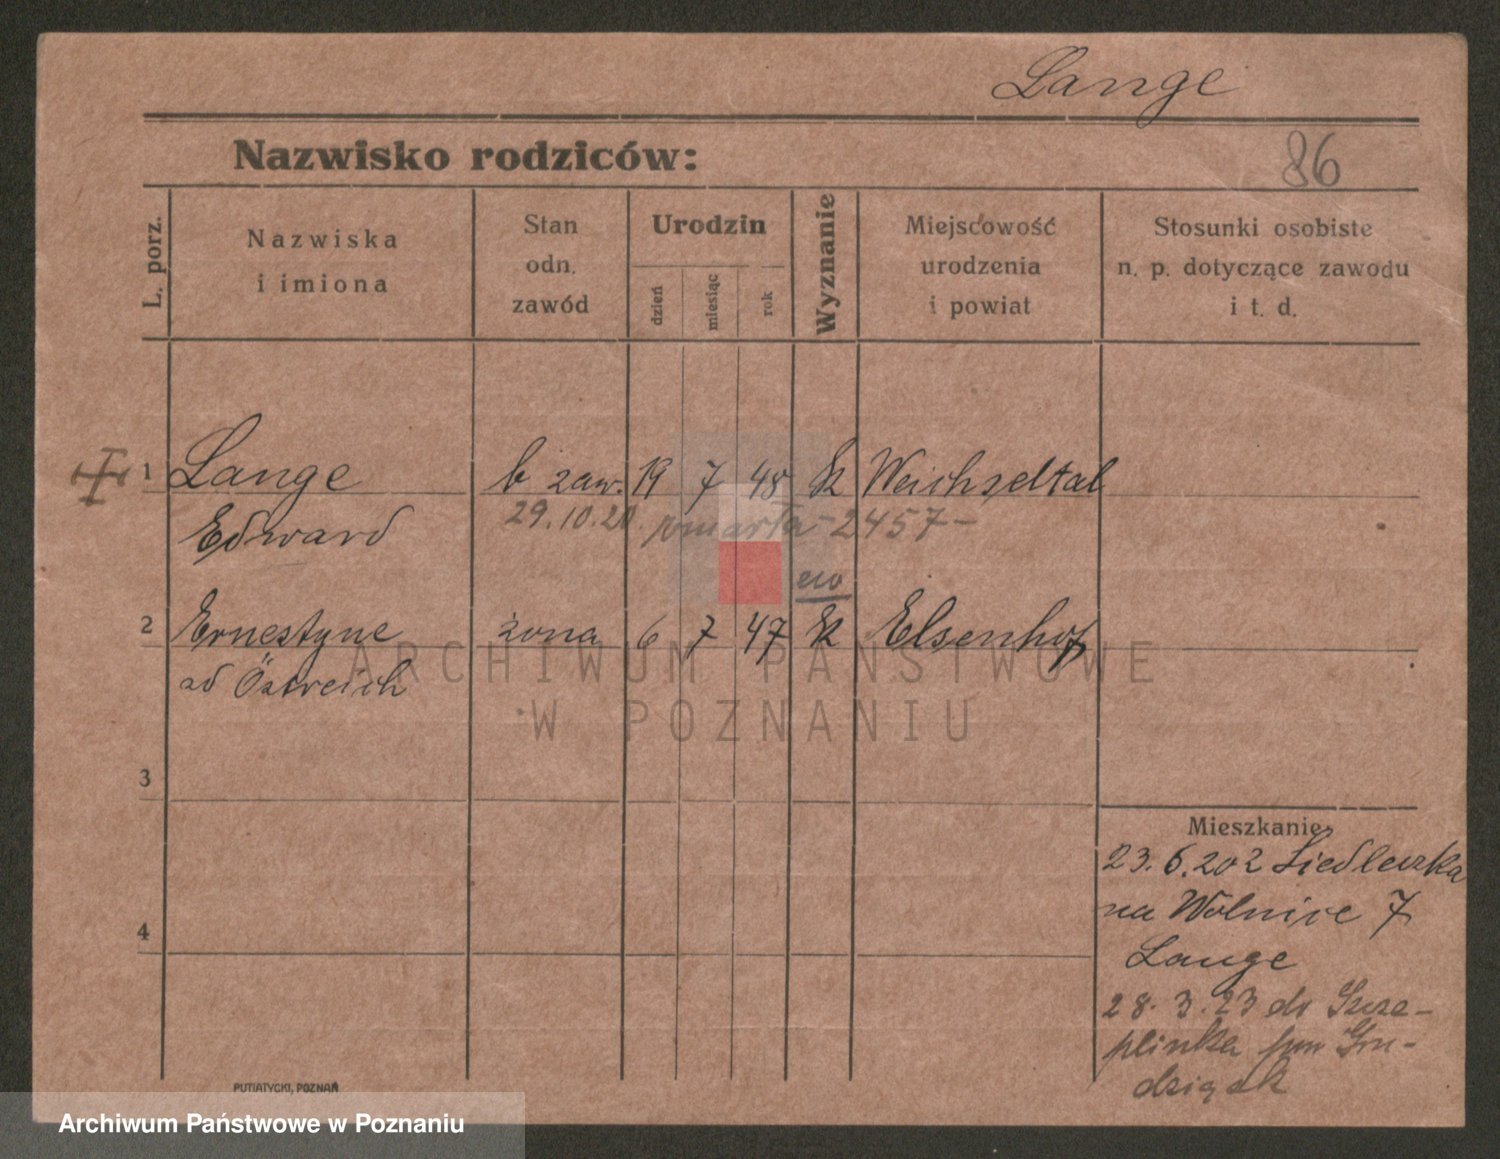 Lange
Nazwisko rodziców:
86
L. porz.
Nazwiska
i imiona
Stan
odn.
zawód
Urodzin
dzień
miesiąc
rok
Wyznanie
Miejscowość
urodzenia
i powiat
Stosunki osobiste
n. p. dotyczące zawodu
i t. d.
1 Lange b zaw. 19 7 48 k Weichseltal
Edward 29.10.20. zmarła - 2457 -
ew
2 Ernestyne żona 6 7 47 k Elsenhof
zd Östreich
ARCHIWUM PAŃSTWOWE
W POZNANIU
3
4
Mieszkanie
23.6.20 z Siedleczka
na Wolnice 7
Lange
28.3.23 do Szcze-
plinka pow Gru-
dziądz
PUTIATYCKI, POZNAŃ
Archiwum Państwowe w Poznaniu